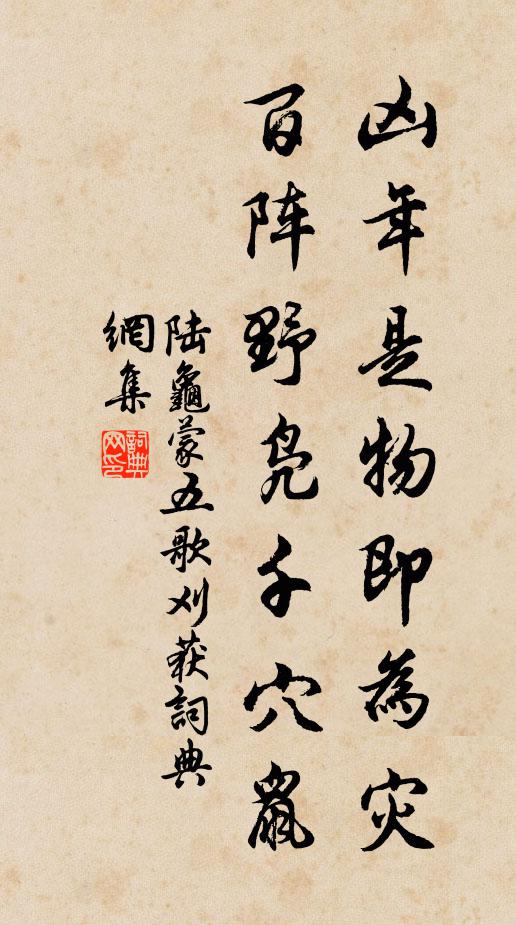 凶年是物即為灾
百阵野凫千穴鼠
陆龜蒙五歌刈获詞典
網集
詞典網印